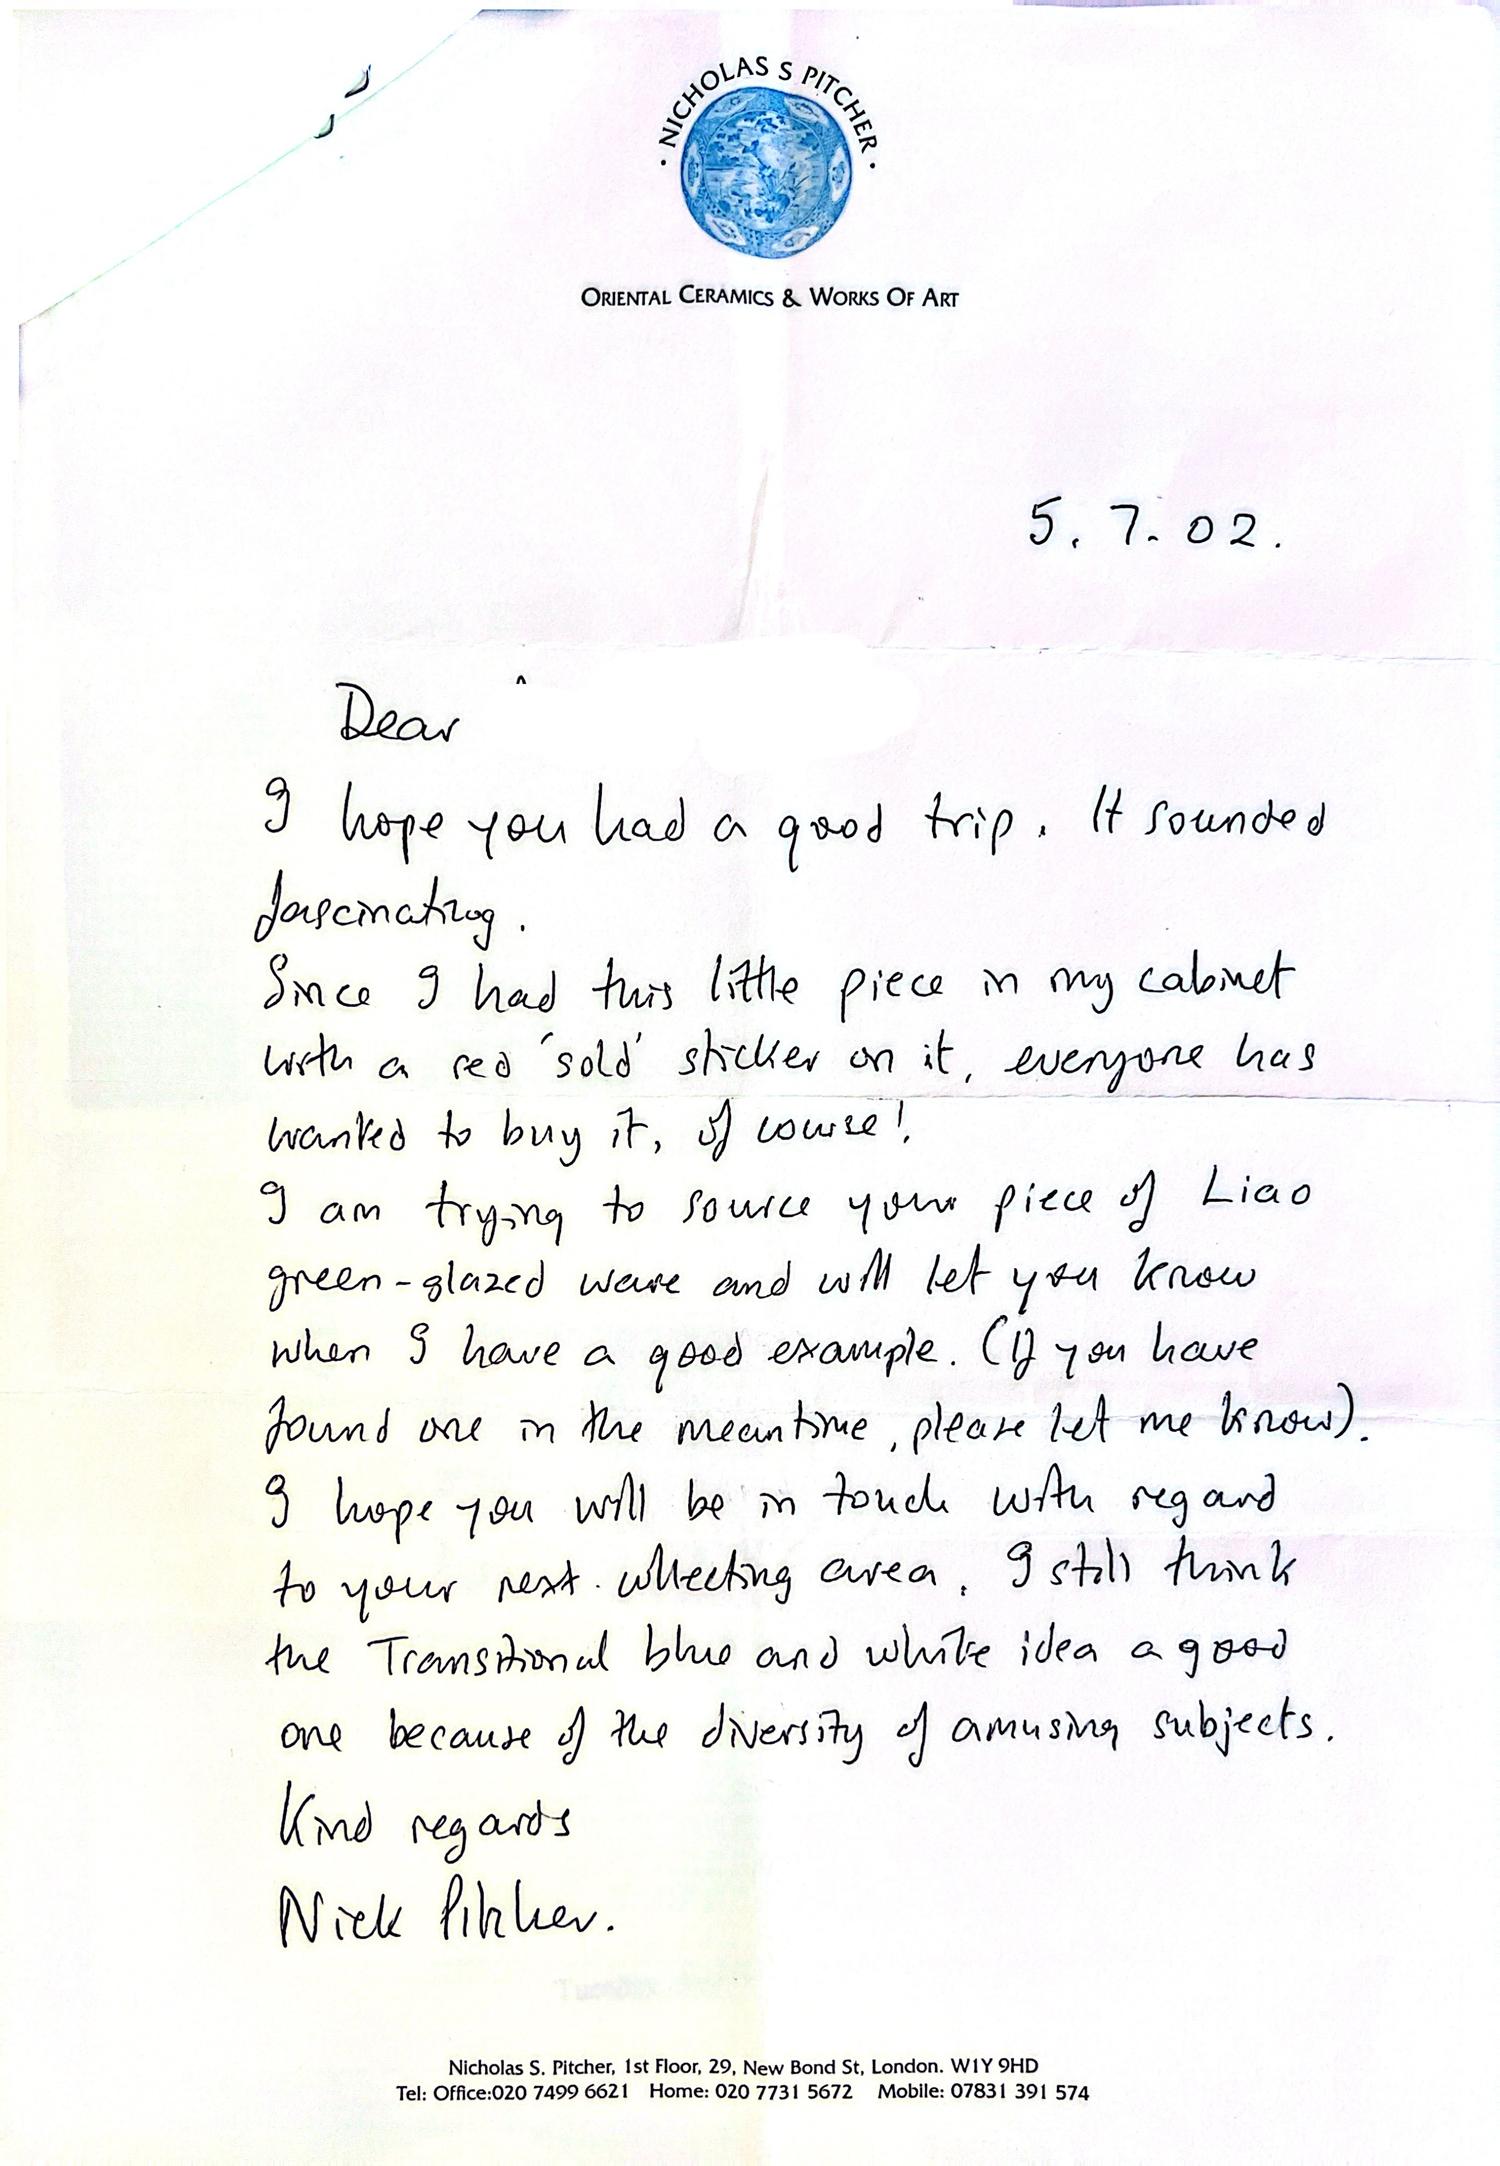 · NICHOLAS S PITCHER ·
ORIENTAL CERAMICS & WORKS OF ART
5. 7. 02.
Dear
I hope you had a good trip. It sounded
fascinating.
Since I had this little piece in my cabinet
with a red 'sold' sticker on it, everyone has
wanted to buy it, of course!
I am trying to source your piece of Liao
green-glazed ware and will let you know
when I have a good example. (If you have
found one in the meantime, please let me know).
I hope you will be in touch with regard
to your next collecting area. I still think
the Transitional blue and white idea a good
one because of the diversity of amusing subjects.
Kind regards
Nick Pitcher.
Nicholas S. Pitcher, 1st Floor, 29, New Bond St, London. W1Y 9HD
Tel: Office:020 7499 6621 Home: 020 7731 5672 Mobile: 07831 391 574